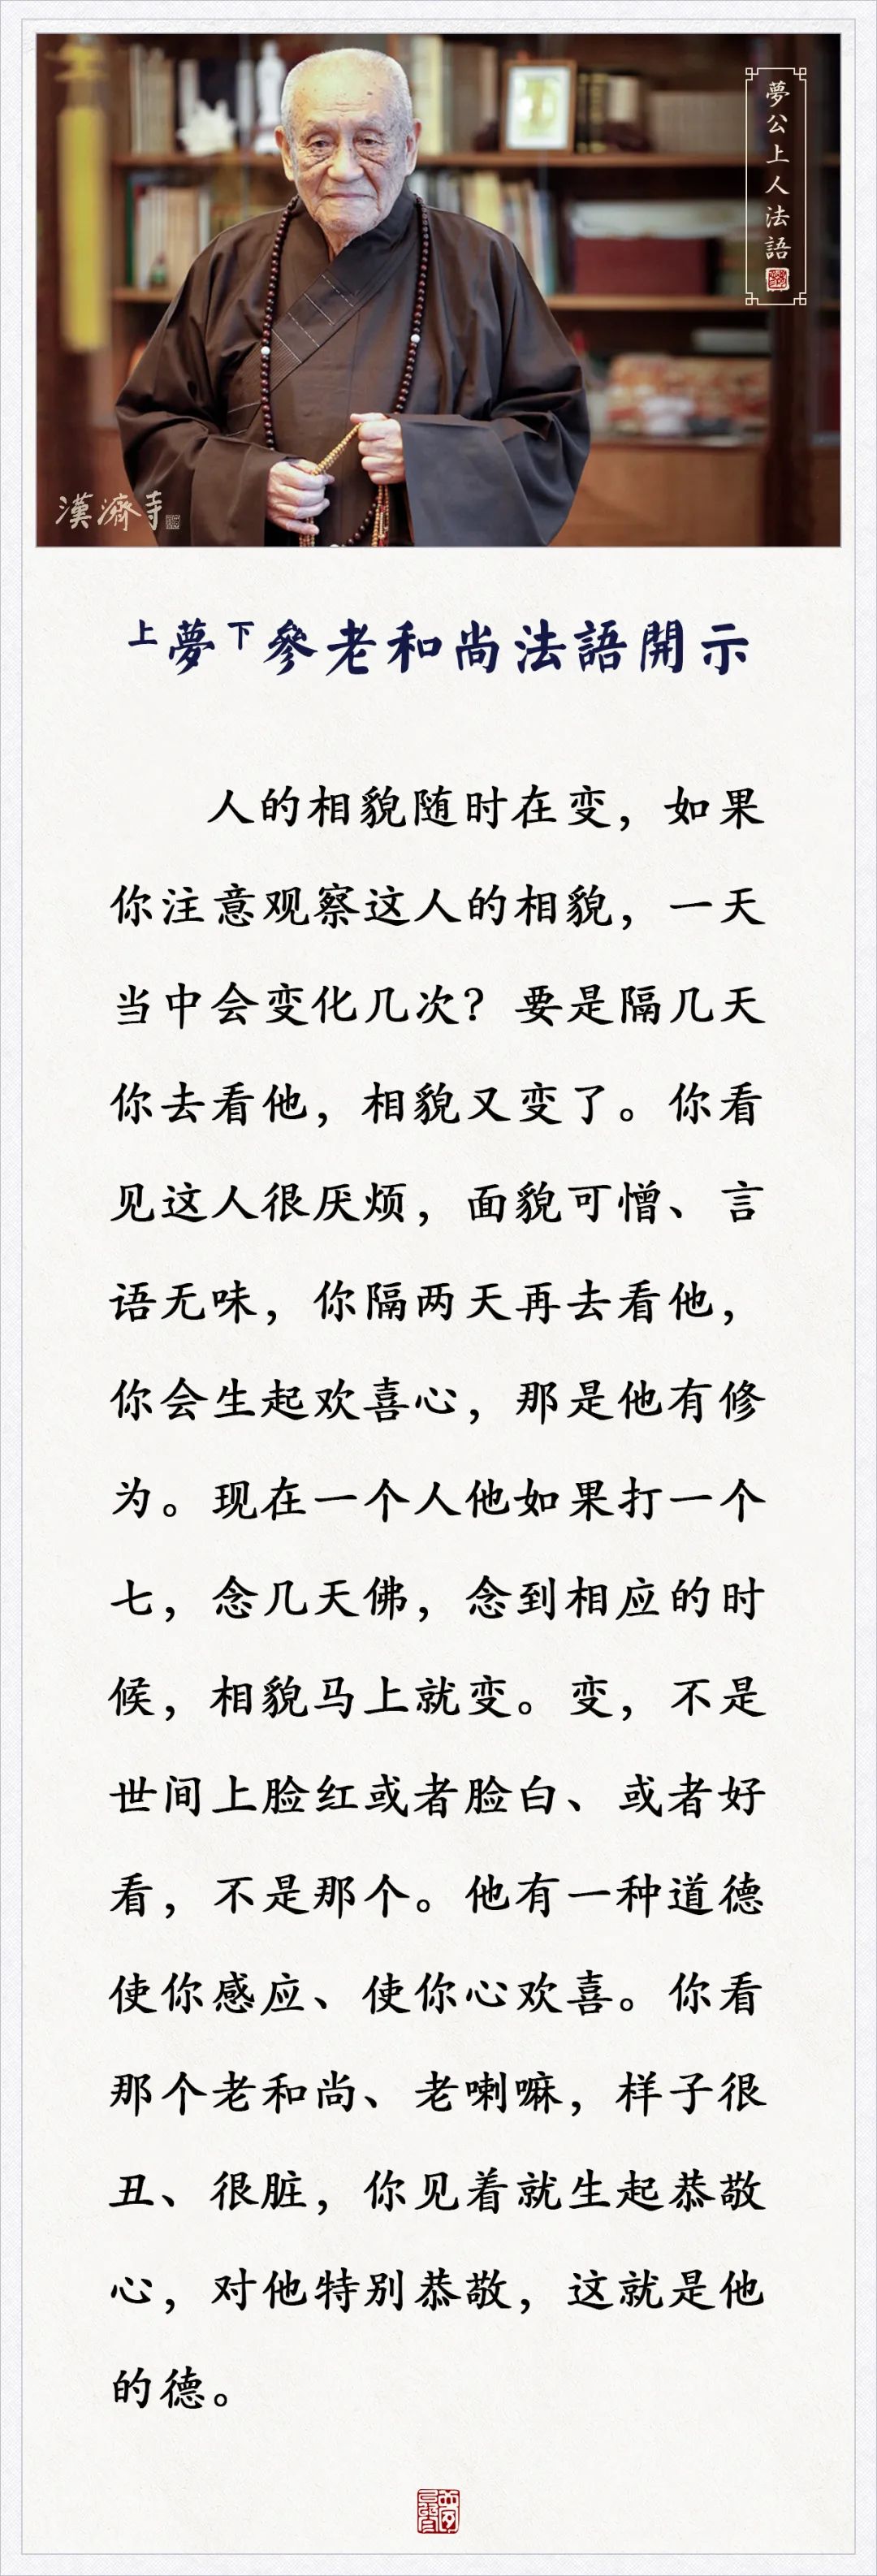 夢公上人法語
漢濟寺
上夢下參老和尚法語開示
人的相貌随时在变，如果
你注意观察这人的相貌，一天
当中会变化几次？要是隔几天
你去看他，相貌又变了。你看
见这人很厌烦，面貌可憎、言
语无味，你隔两天再去看他，
你会生起欢喜心，那是他有修
为。现在一个人他如果打一个
七，念几天佛，念到相应的时
候，相貌马上就变。变，不是
世间上脸红或者脸白、或者好
看，不是那个。他有一种道德
使你感应、使你心欢喜。你看
那个老和尚、老喇嘛，样子很
丑、很脏，你见着就生起恭敬
心，对他特别恭敬，这就是他
的德。